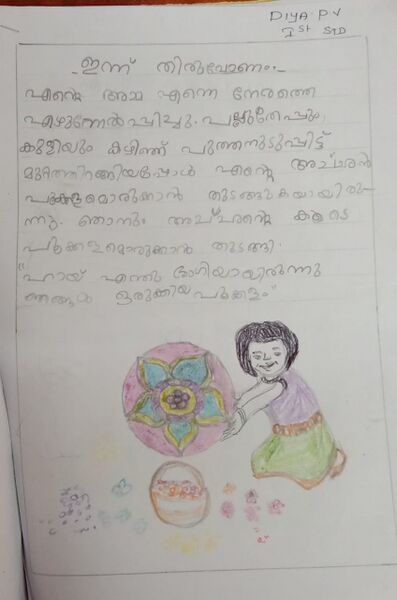 DIYA P.V
Ist STD
ഇന്ന് തിരുവോണം.
എന്റെ അമ്മ എന്നെ നേരത്തെ
എഴുന്നേൽപ്പിച്ചു. പല്ലുതേപ്പും,
കുളിയും കഴിഞ്ഞ് പുത്തനുടുപ്പിട്ട്
മുറ്റത്തിറങ്ങിയപ്പോൾ എന്റെ അച്ഛൻ
പൂക്കളമൊരുക്കാൻ തുടങ്ങുകയായിരു-
ന്നു. ഞാനും അച്ഛന്റെ കൂടെ
പൂക്കളമൊരുക്കാൻ തുടങ്ങി.
"ഹായ് എന്തു ഭംഗിയായിരുന്നു
ഞങ്ങൾ ഒരുക്കിയ പൂക്കളം"